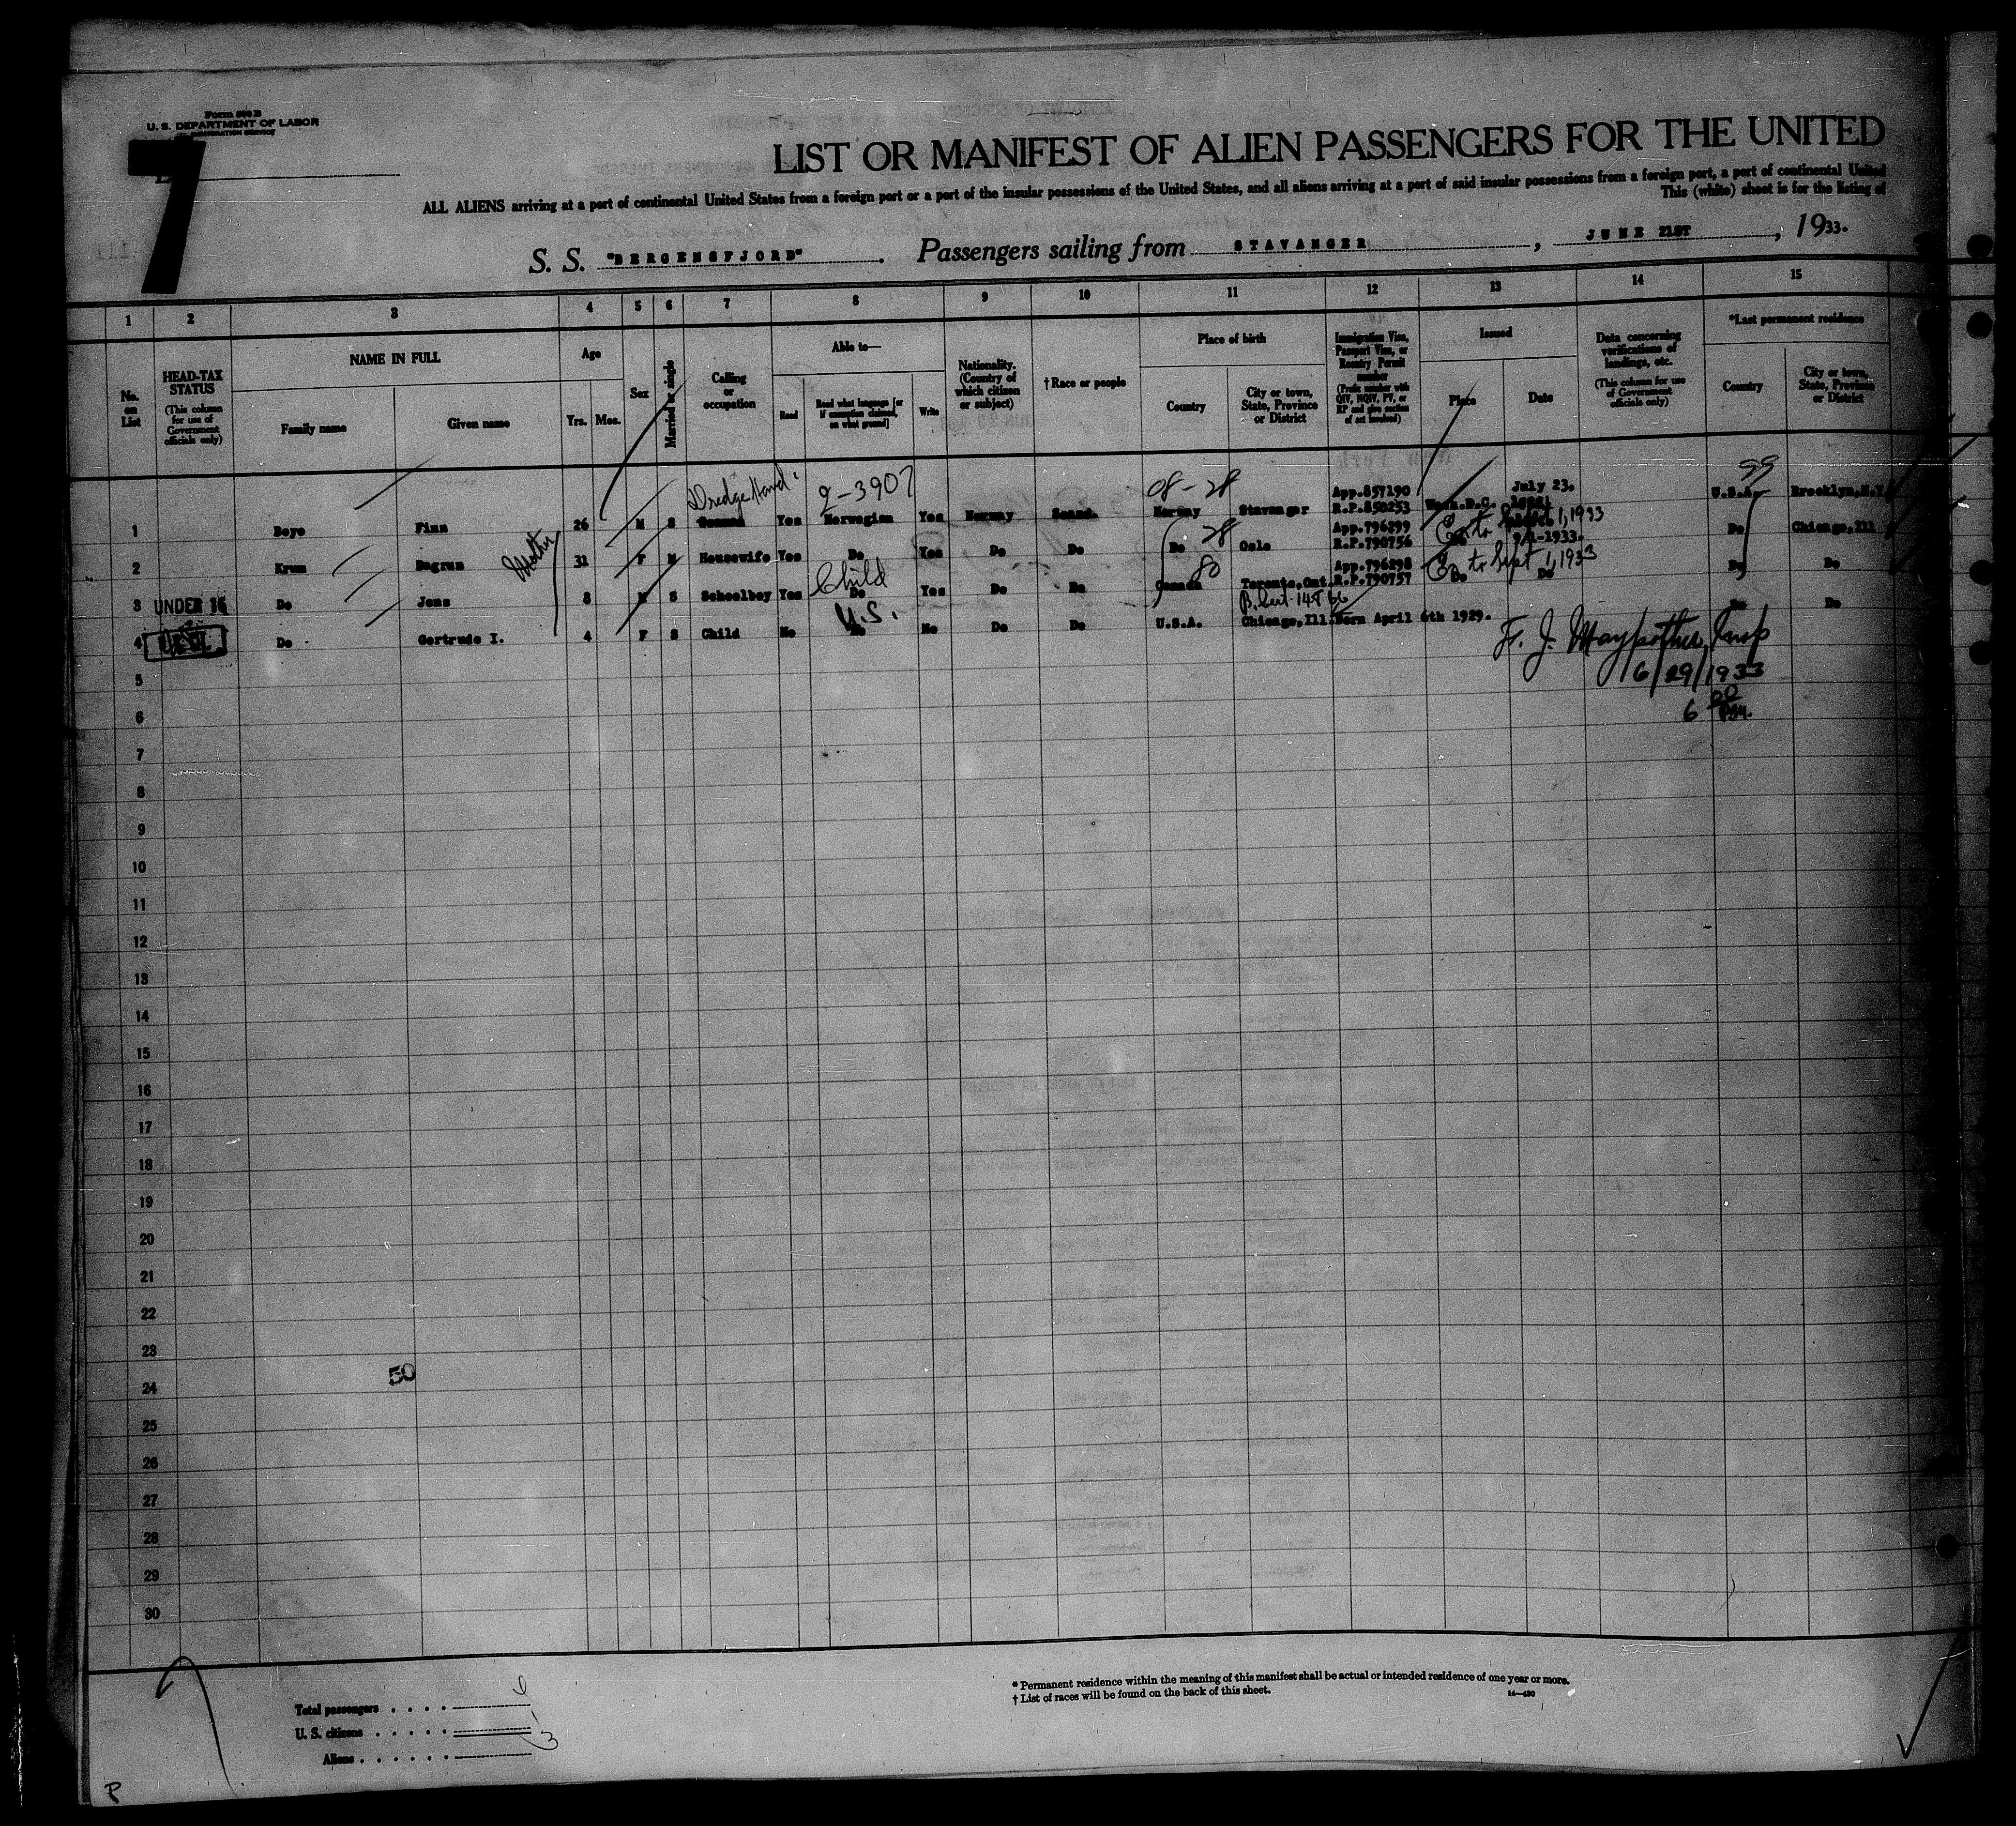 Form 500 B
U. S. DEPARTMENT OF LABOR
IMMIGRATION SERVICE
7
LIST OR MANIFEST OF ALIEN PASSENGERS FOR THE UNITED
ALL ALIENS arriving at a port of continental United States from a foreign port or a port of the insular possessions of the United States, and all aliens arriving at a port of said insular possessions from a foreign port, a port of continental United
This (white) sheet is for the listing of
S. S. "BERGENSFJORD". Passengers sailing from STAVANGER, JUNE 21ST, 1933.
1 2 3 4 5 6 7 8 9 10 11 12 13 14 15
No. on List
HEAD-TAX STATUS
(This column for use of Government officials only)
NAME IN FULL
Family name
Given name
Age
Yrs. Mos.
Sex
Married or single
Calling or occupation
Able to—
Read
Read what language [or if exemption claimed, on what ground]
Write
Nationality. (Country of which citizen or subject)
†Race or people
Place of birth
Country
City or town, State, Province or District
Immigration Visa, Passport Visa, or Reentry Permit number
(Prefix number with QIV, NQIV, PV, or RP and give section of act involved)
Issued
Place
Date
Data concerning verifications of landings, etc.
(This column for use of Government officials only)
*Last permanent residence
Country
City or town, State, Province or District
Dredge Hand 2-3907 08-28 99
App.857190 July 23.
1 Boye Finn 26 M S Yes Norwegian Yes Norway Scand. Norway Stavanger R.P.850253 Wash.D.C. U.S.A. Brooklyn,N.Y
Mother 28 App.796299 Ex to Sept 1, 1933
2 Krum Dagrun 31 F M Housewife Yes Do Yes Do Do Do Oslo R.P.790756 9/1-1933. Do Chicago,Ill
Child 80 App.796298 Ex to Sept 1, 1933
3 UNDER 16 Do Jens 8 M S Schoolboy Yes Do Yes Do Do Canada Toronto,Ont. R.P.790757 Do Do Do Do
U.S. B. Cert
4 Do Gertrude I. 4 F S Child No No No Do Do U.S.A. Chicago,Ill. Born April 6th 1929. Do Do
5
6
6/29/1933
7
8
9
10
11
12
13
14
15
16
17
18
19
20
21
22
23
24 50
25
26
27
28
29
30
Total passengers
U. S. citizens 1
Aliens 3
* Permanent residence within the meaning of this manifest shall be actual or intended residence of one year or more.
† List of races will be found on the back of this sheet.
14—430
P